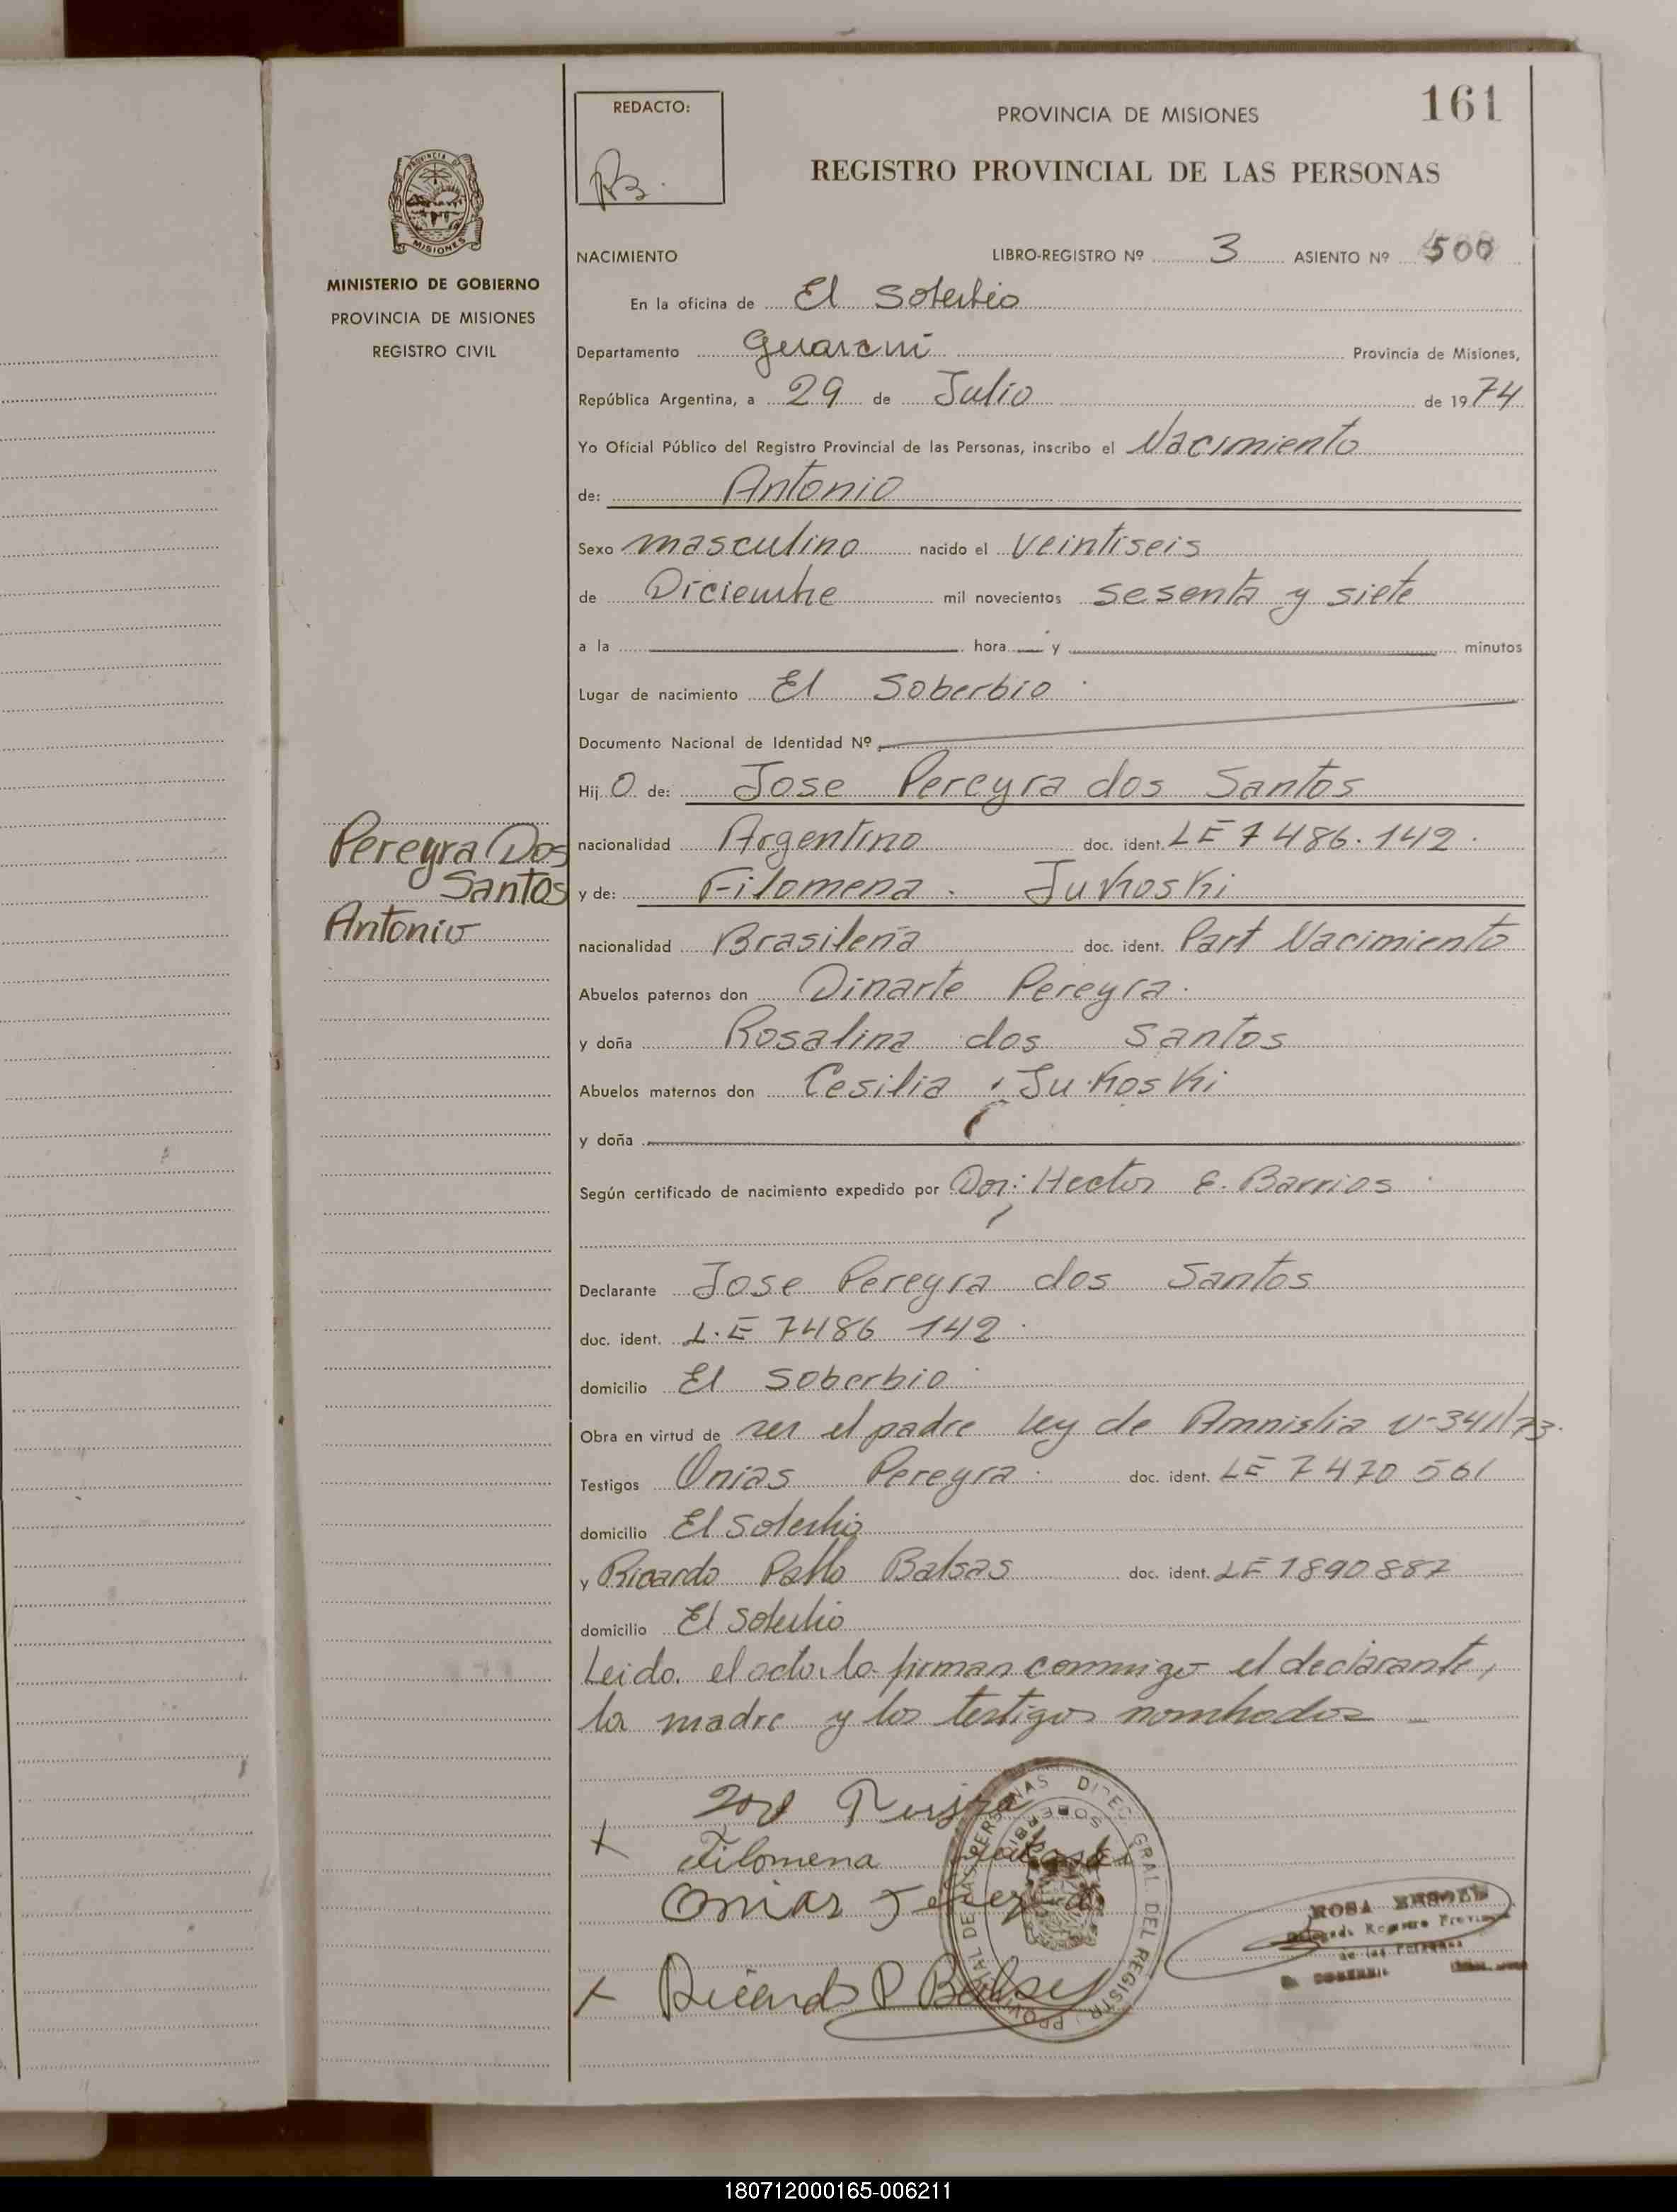 161
REDACTO:
PROVINCIA DE MISIONES
REGISTRO PROVINCIAL DE LAS PERSONAS
PROVINCIA DE
MISIONES
MINISTERIO DE GOBIERNO
PROVINCIA DE MISIONES
REGISTRO CIVIL
NACIMIENTO LIBRO-REGISTRO Nº 3 ASIENTO Nº 500
En la oficina de El Soberbio
Departamento Guarani Provincia de Misiones,
República Argentina, a 29 de Julio de 1974
Yo Oficial Público del Registro Provincial de las Personas, inscribo el Nacimiento
de: Antonio
Sexo masculino nacido el veintiseis
de Diciembre mil novecientos sesenta y siete
a la hora y minutos
Lugar de nacimiento El Soberbio
Documento Nacional de Identidad Nº
Hij O de: Jose Pereyra dos Santos
Pereyra Dos
Santos
Antonio
nacionalidad Argentino doc. ident. LE 7486.142.
y de: Filomena. Jukoski
nacionalidad Brasileña doc. ident. Part Nacimiento
Abuelos paternos don Dinarte Pereyra.
y doña Rosalina dos Santos
Abuelos maternos don Cesilia Jukoski
y doña
Según certificado de nacimiento expedido por Dor: Hector E. Barrios
Declarante Jose Pereyra dos Santos
doc. ident. L.E 7486 142.
domicilio El Soberbio
Obra en virtud de ser el padre ley de Amnistia 341/73.
Testigos Onias Pereyra. doc. ident. LE 7470 561
domicilio El Soberbio
y Ricardo Pablo Balsas doc. ident. LE 1890887
domicilio El Soberbio
Leido el acto, lo firman conmigo el declarante,
la madre y los testigos nombrados
Filomena
Onias Pereyra
Ricardo P Balsas
DIREC GRAL DEL REGISTR PROVINCIAL DE LAS PERSONAS
SOBERBIO
ROSA
Delegada Registro Provincial
de las Personas
El SOBERBIO
180712000165-006211